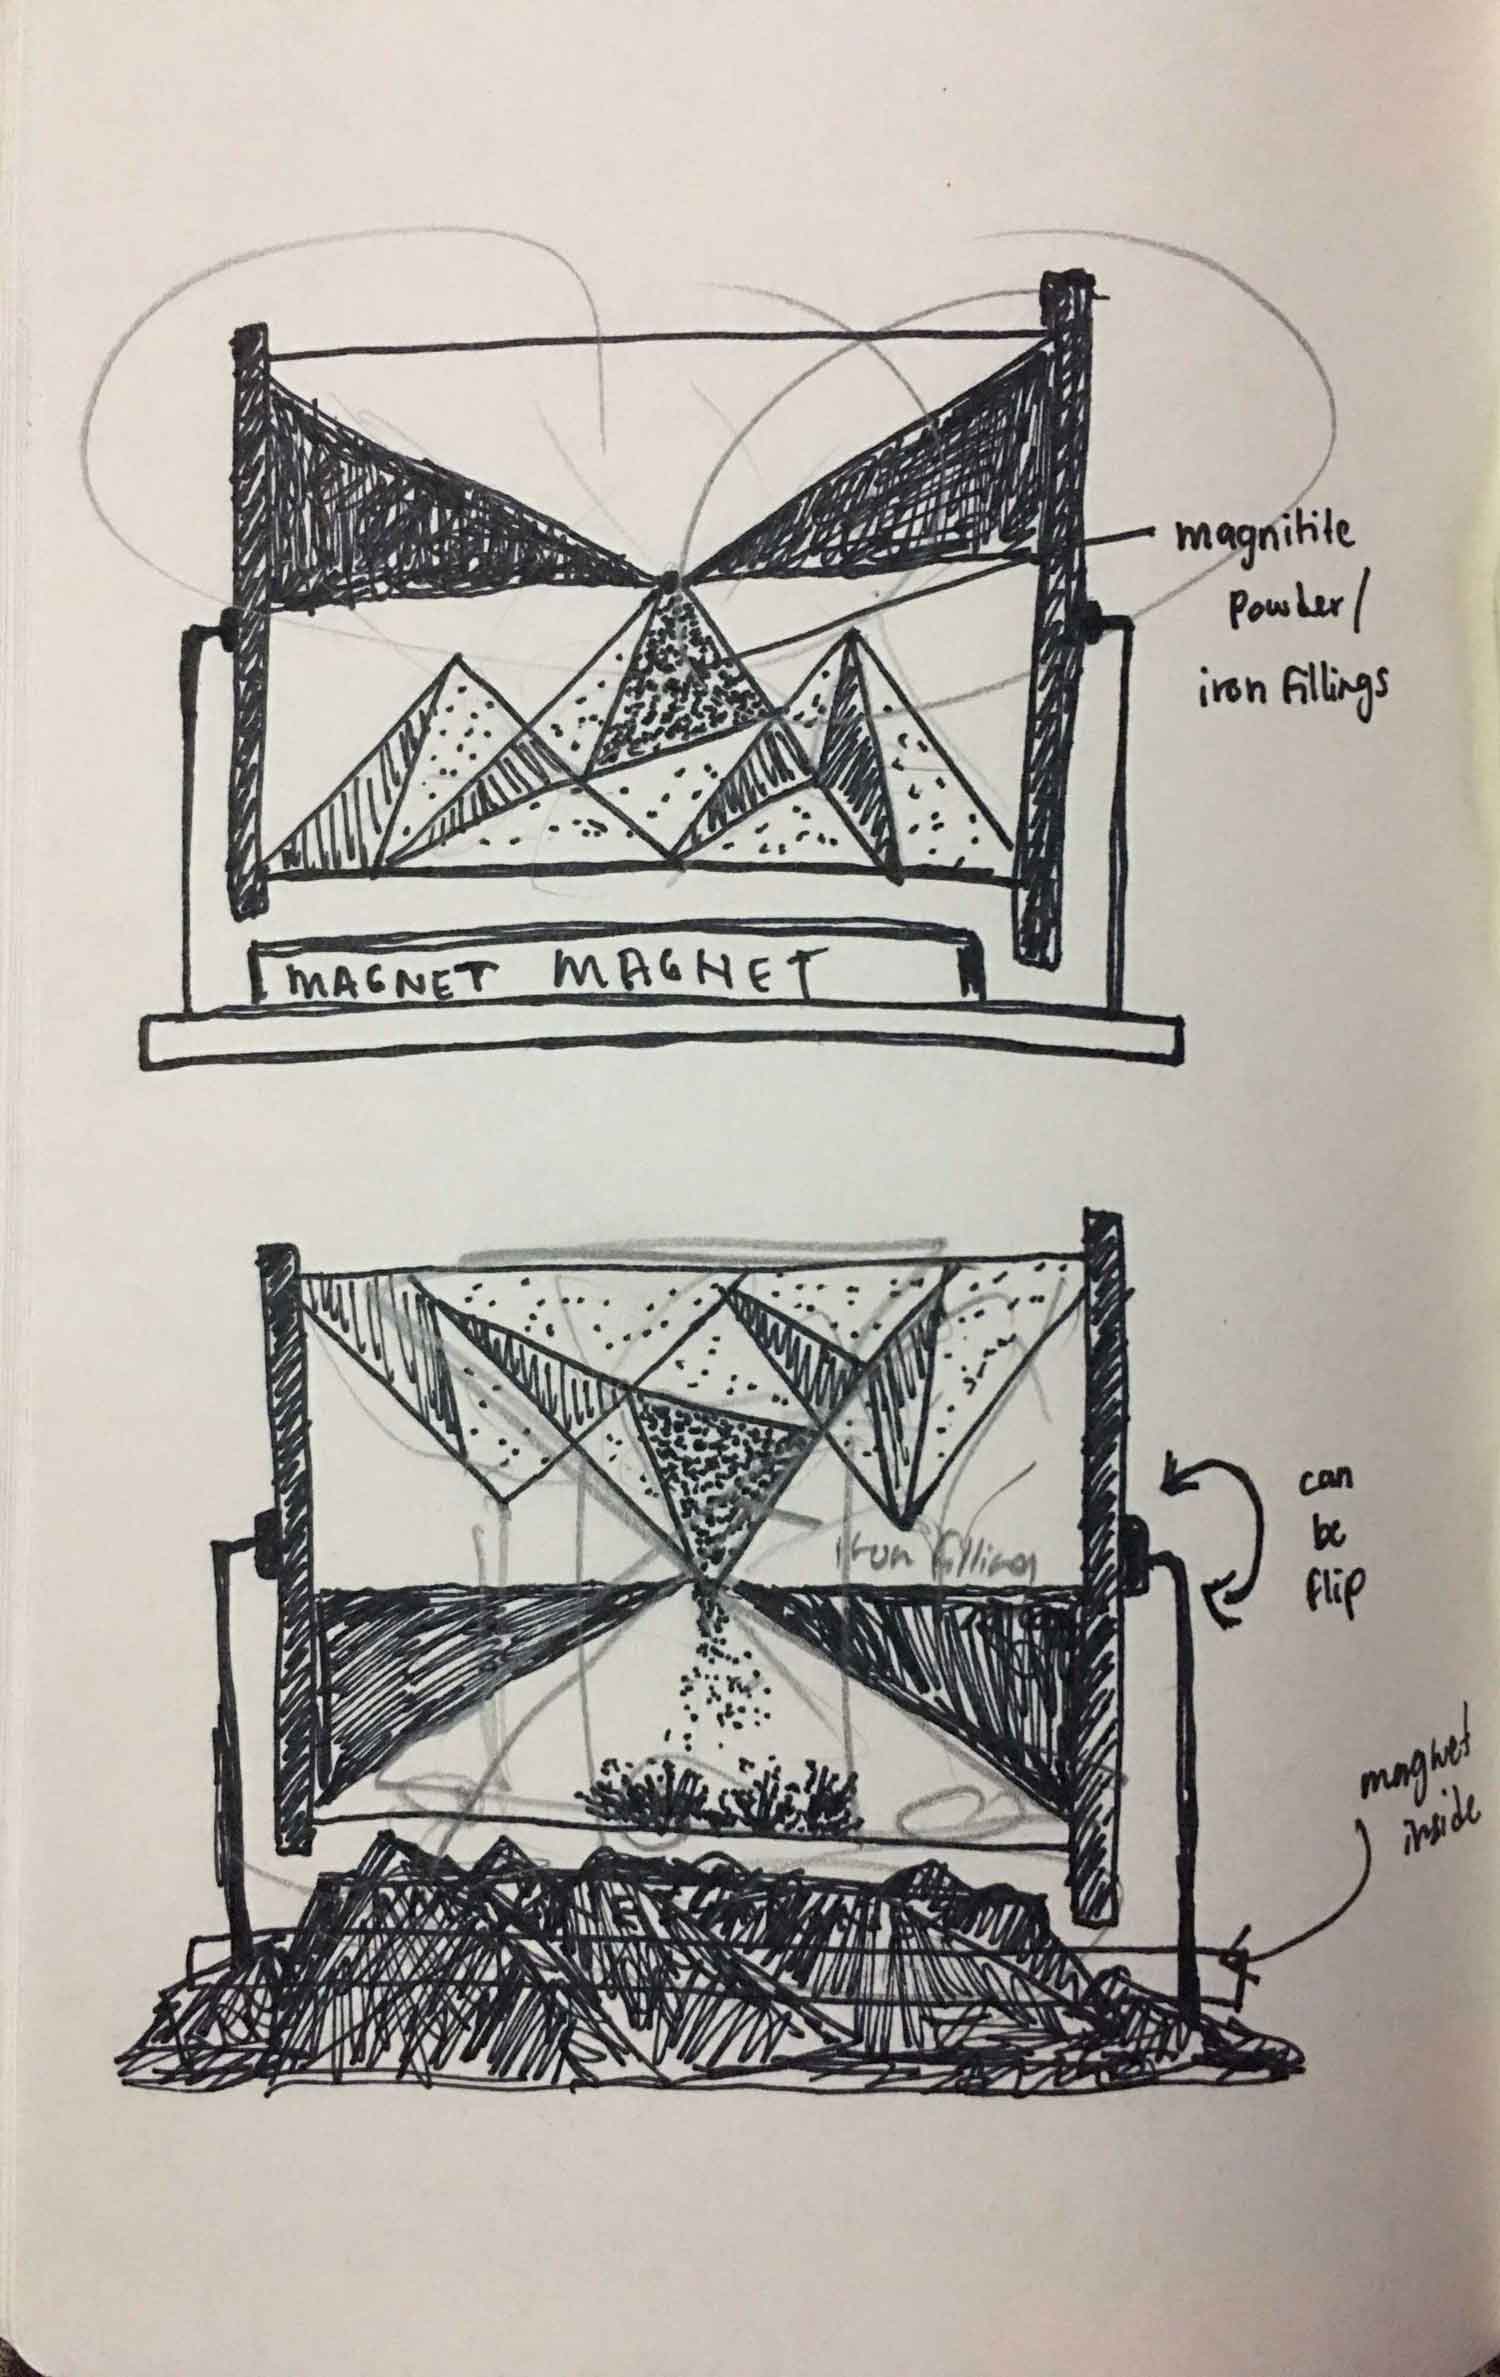 magnitite
powder/
iron fillings
MAGNET MAGNET
can
be
flip
iron filling
magnet
inside